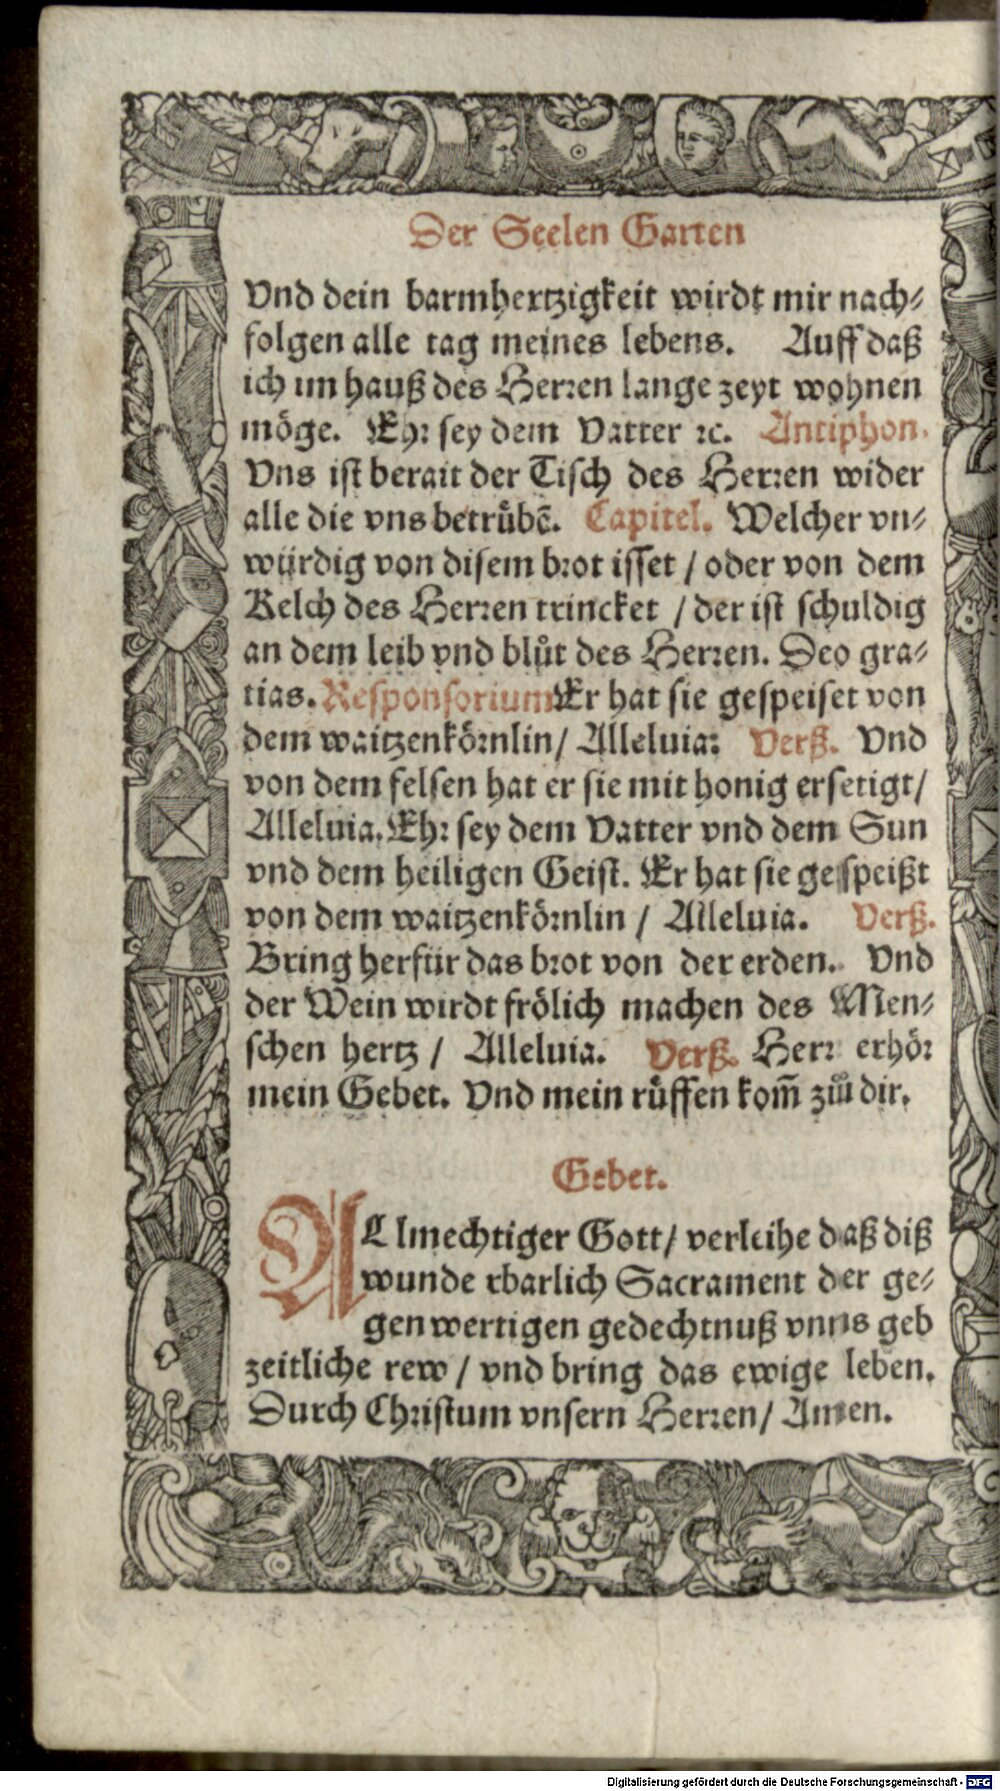 Der Seelen Garten
Vnd dein barmhertzigkeit wirdt mir nach⸗
folgen alle tag meines lebens. Auff daß
ich im hauß des Herren lange zeyt wohnen
möge. Ehr sey dem Vatter ꝛc. Antiphon.
Vns ist berait der Tisch des Herren wider
alle die vns betrübē. Capitel. Welcher vn⸗
würdig von disem brot isset / oder von dem
Kelch des Herren trincket / der ist schuldig
an dem leib vnd blůt des Herren. Deo gra⸗
tias. Responsorium Er hat sie gespeiset von
dem waitzenkörnlin / Alleluia: Verß. Vnd
von dem felsen hat er sie mit honig ersetigt /
Alleluia. Ehr sey dem Vatter vnd dem Sun
vnd dem heiligen Geist. Er hat sie gespeißt
von dem waitzenkörnlin / Alleluia. Verß.
Bring herfür das brot von der erden. Vnd
der Wein wirdt frölich machen des Men⸗
schen hertz / Alleluia. Verß. Herr erhör
mein Gebet. Vnd mein rüffen kom̄ zů dir.
Gebet.
ALlmechtiger Gott / verleihe daß diß
wunderbarlich Sacrament der ge⸗
genwertigen gedechtnuß vnns geb
zeitliche rew / vnd bring das ewige leben.
Durch Christum vnsern Herren / Amen.
Digitalisierung gefördert durch die Deutsche Forschungsgemeinschaft - DFG